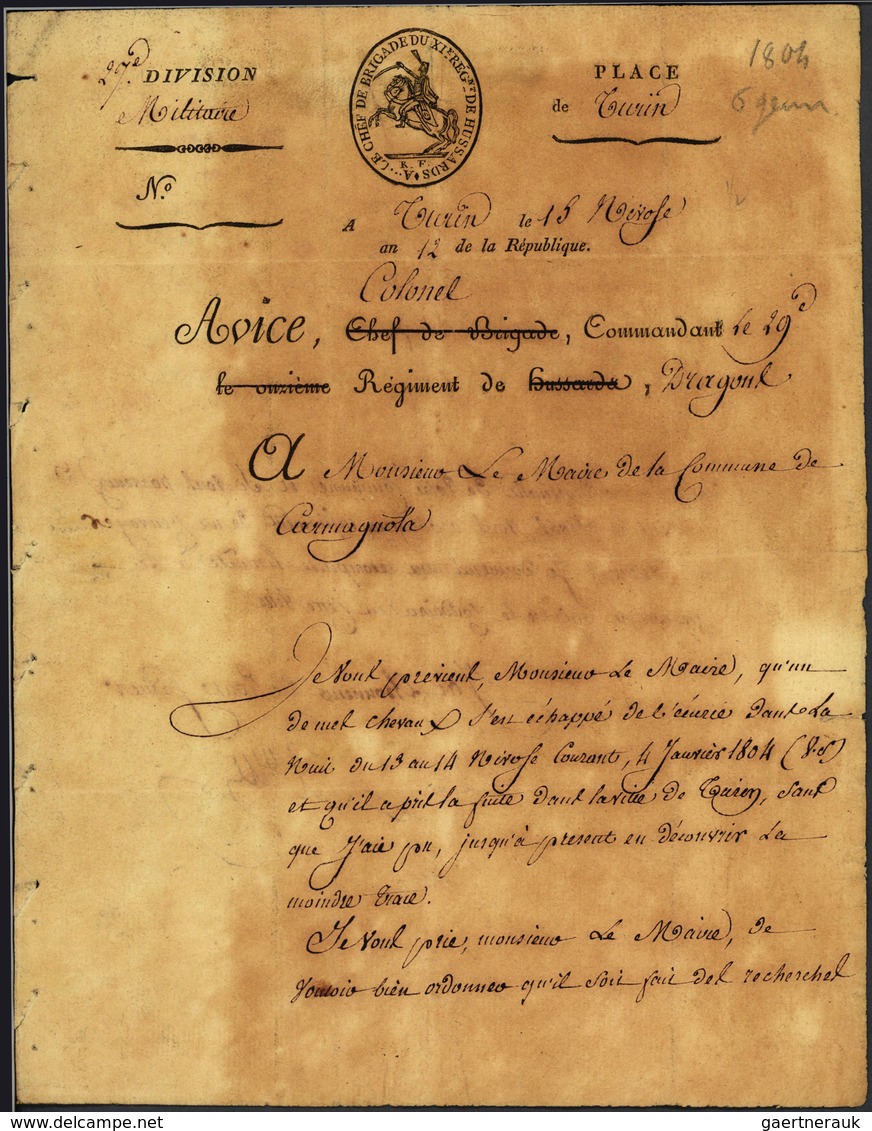 27e DIVISION
Militaire
N.o
LE CHEF DE BRIGADE DU XIe REGnt DE HUSSARDS
R. F.
PLACE
de Turin
1804
6 genn
A Turin le 15 Nivose
an 12 de la République.
Colonel
Avice, Chef de Brigade, Commandant le 29e
le onzième Régiment de Hussards, Dragons
A Monsieur Le Maire de la Commune de
Carmagnola
Je vous previens, Monsieur Le Maire, qu'un
de mes chevaux s'est échappé de l'écurie dans La
Nuit du 13 au 14 Nivose Courant, 4 Janvier 1804 (V.S)
et qu'il a pris la fuite dans la ville de Turin, sans
que J'aie pu, jusqu'à present en découvrir La
moindre trace.
Je Vous prie, monsieur Le Maire, de
Vouloir bien ordonner qu'il soit fait des recherches
gaertnerauk // delcampe.net